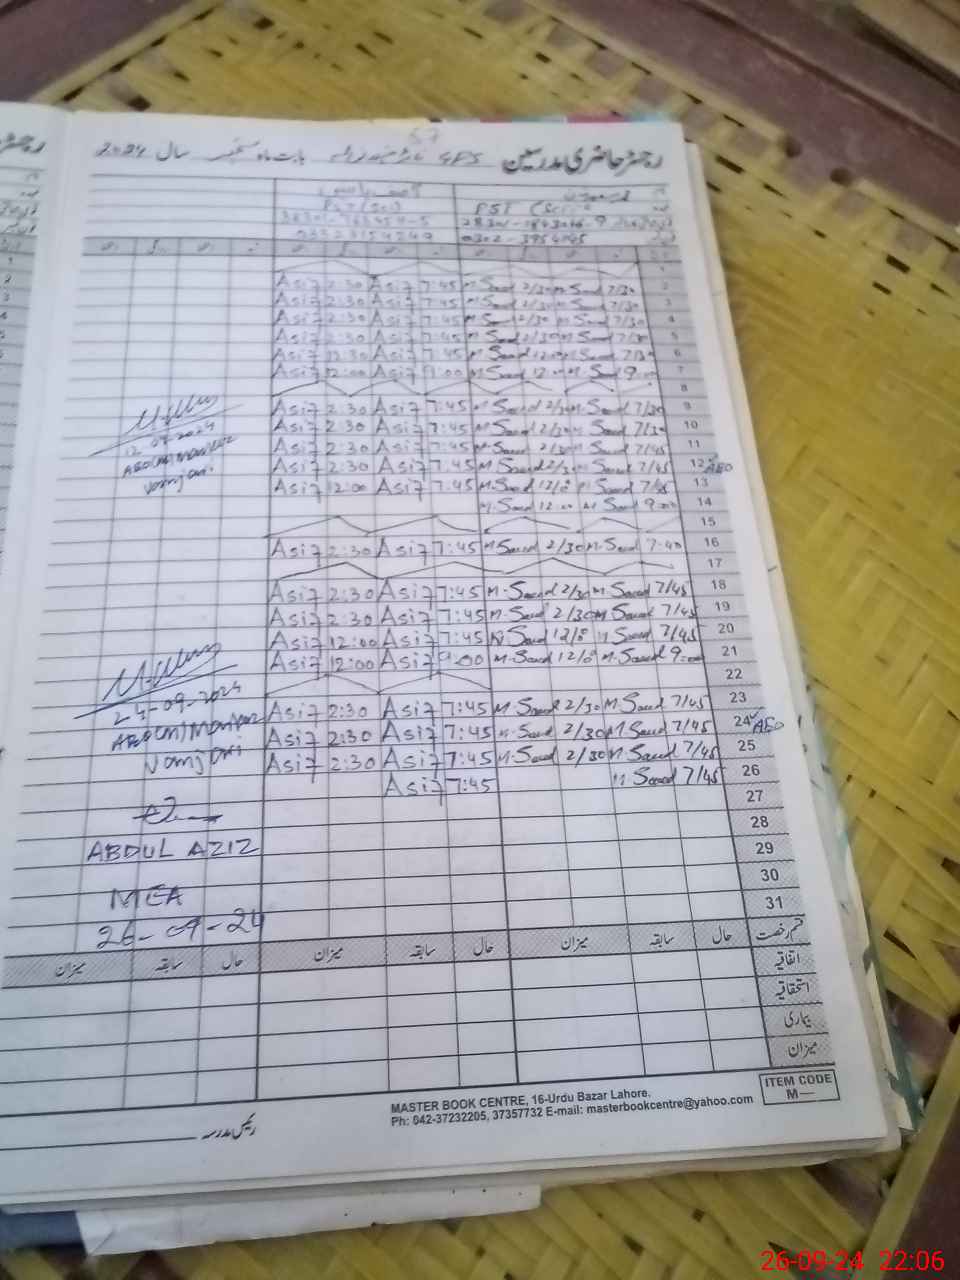 رجسٹر حاضری مدرسین GES بابت ماہ ستمبر سال 2024
PST (Sci)
0302-3954145
1
Asif 2:30 Asif 7:45 M.Saud 2/30 M.Saud 7/30 2
Asif 2:30 Asif 7:45 M.Saud 2/30 M.Saud 7/30 3
Asif 2:30 Asif 7:45 M.Saud 2/30 M.Saud 7/30 4
Asif 2:30 Asif 7:45 M.Saud 2/30 M.Saud 7/30 5
Asif 12:30 Asif 7:45 M.Saud 12:00 M.Saud 7/30 6
Asif 12:00 Asif 9:00 M.Saud 12:00 M.Saud 9:00 7
8
Asif 2:30 Asif 7:45 M.Saud 2/30 M.Saud 7/30 9
Asif 2:30 Asif 7:45 M.Saud 2/30 M.Saud 7/30 10
Asif 2:30 Asif 7:45 M.Saud 2/30 M.Saud 7/45 11
Asif 2:30 Asif 7:45 M.Saud 2/30 M.Saud 7/45 12 AEO
Asif 12:00 Asif 7:45 M.Saud 12/0 M.Saud 7/45 13
M.Saud 12:00 M.Saud 9:00 14
15
Asif 2:30 Asif 7:45 M.Saud 2/30 M.Saud 7:40 16
17
Asif 2:30 Asif 7:45 M.Saud 2/30 M.Saud 7/45 18
Asif 2:30 Asif 7:45 M.Saud 2/30 M.Saud 7/45 19
Asif 12:00 Asif 7:45 M.Saud 12/0 M.Saud 7/45 20
Asif 12:00 Asif 9:00 M.Saud 12/0 M.Saud 9:00 21
22
Asif 2:30 Asif 7:45 M.Saud 2/30 M.Saud 7/45 23
Asif 2:30 Asif 7:45 M.Saud 2/30 M.Saud 7/45 24 AEO
Asif 2:30 Asif 7:45 M.Saud 2/30 M.Saud 7/45 25
Asif 7:45 M.Saud 7/45 26
27
28
29
30
31
12.09.2024
AEO(M) Manjhar
Vamjari
24-09-2024
AEO(M) Manjhar
Vamjari
ABDUL AZIZ
MEA
26-09-24
قسم رخصت حال سابقہ میزان حال سابقہ میزان حال سابقہ میزان
اتفاقیہ
استحقاقیہ
بیماری
میزان
ITEM CODE
M—
MASTER BOOK CENTRE, 16-Urdu Bazar Lahore.
Ph: 042-37232205, 37357732 E-mail: masterbookcentre@yahoo.com
رئیس مدرسہ
26-09-24 22:06